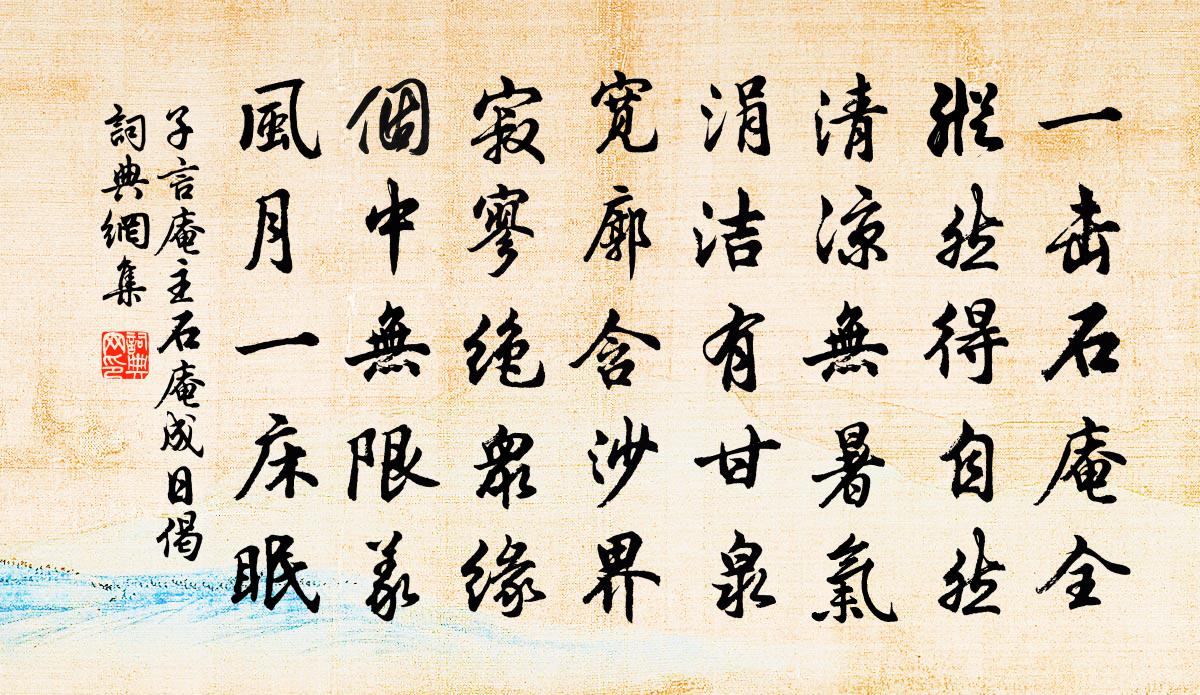 一击石庵全
縱然得自然
清涼無暑氣
涓洁有甘泉
寬廓含沙界
寂寥絕眾緣
個中無限義
風月一床眠
子言庵主石庵成日偈
詞典網集
詞典網印